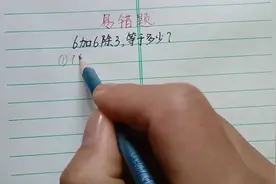 易错题
6加6除3,等于多少?
①(6